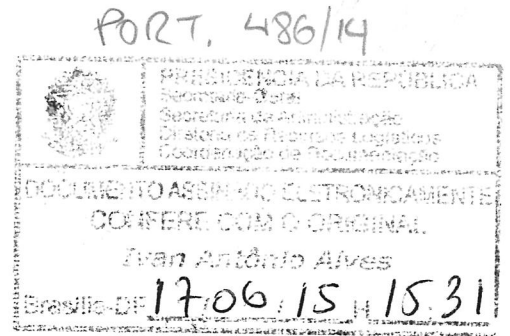 PORT. 486/14
PRESIDÊNCIA DA REPÚBLICA
Secretaria-Geral
Secretaria de Administração
Diretoria de Recursos Logísticos
Coordenação de Documentação
DOCUMENTO ASSINADO ELETRONICAMENTE
CONFERE COM O ORIGINAL
Ivan Antônio Alves
Brasília-DF 17/06/15 H 15:31